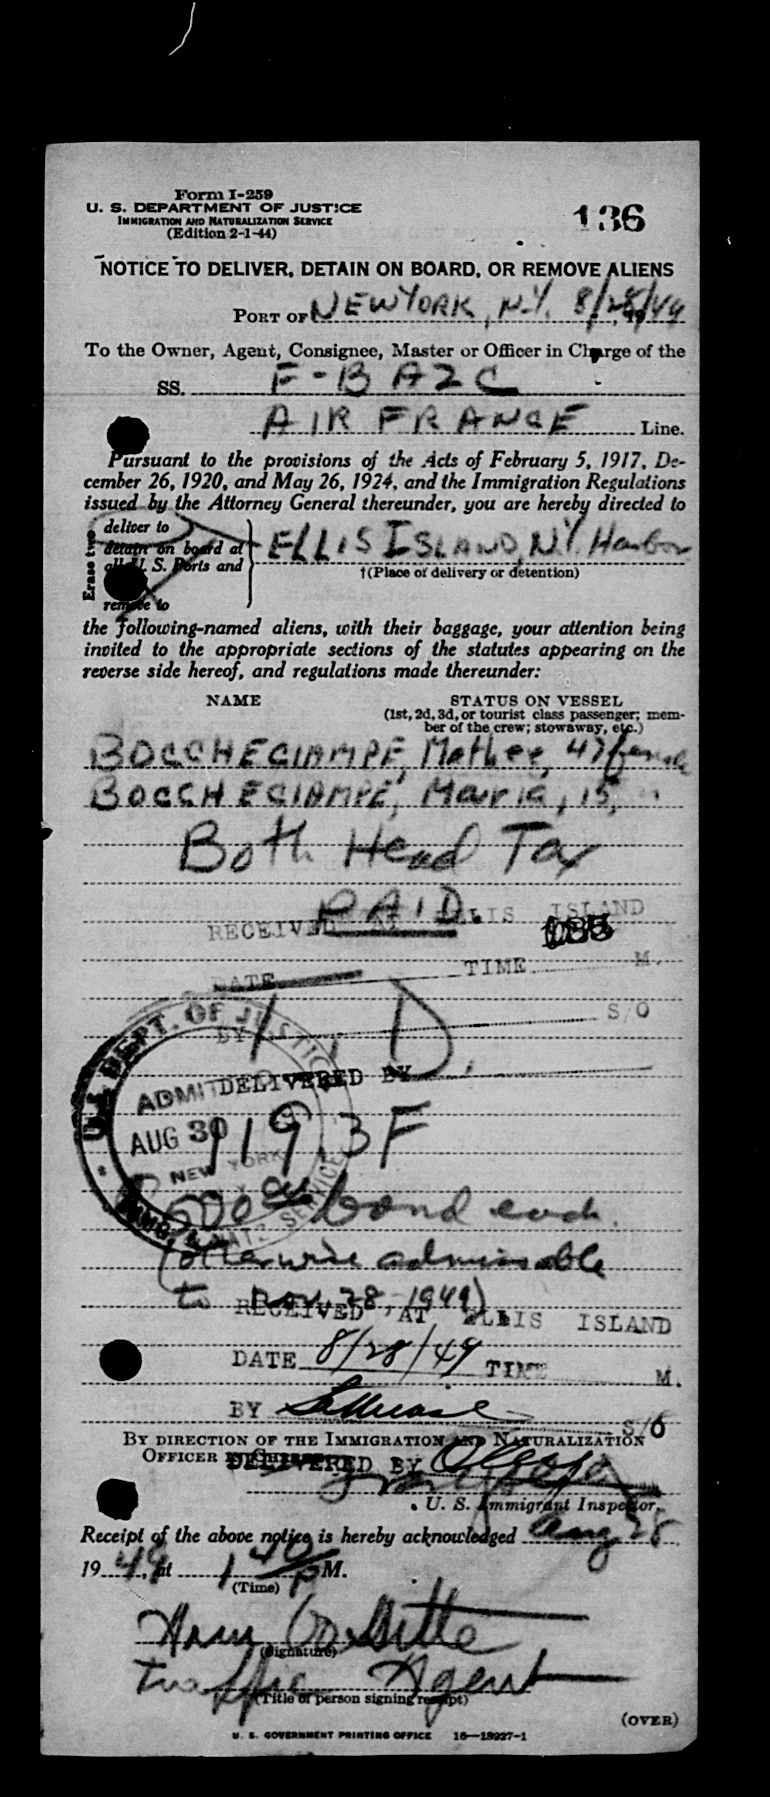 Form I-259
U. S. DEPARTMENT OF JUSTICE
IMMIGRATION AND NATURALIZATION SERVICE
(Edition 2-1-44)
136
NOTICE TO DELIVER, DETAIN ON BOARD, OR REMOVE ALIENS
PORT OF NEW YORK, N.Y. 8/28/49
To the Owner, Agent, Consignee, Master or Officer in Charge of the
SS. F-BAZC
AIR FRANCE Line.
Pursuant to the provisions of the Acts of February 5, 1917, De-
cember 26, 1920, and May 26, 1924, and the Immigration Regulations
issued by the Attorney General thereunder, you are hereby directed to
Erase two
deliver to
detain on board at
all U. S. Ports and
remove to
ELLIS ISLAND, N.Y. Harbor
†(Place of delivery or detention)
the following-named aliens, with their baggage, your attention being
invited to the appropriate sections of the statutes appearing on the
reverse side hereof, and regulations made thereunder:
NAME
STATUS ON VESSEL
(1st, 2d, 3d, or tourist class passenger; mem-
ber of the crew; stowaway, etc.)
BOCCHECIAMPE, Mathee, 47 female
BOCCHECIAMPE, Maria, 15, "
Both Head Tax
PAID.
RECEIVED AT ELLIS ISLAND
DATE TIME M.
BY S/O
T.D.
DELIVERED BY
U.S. DEPT. OF JUSTICE
ADMITTED
AUG 30
NEW YORK
IMMIG. & NATZ. SERVICE
119.3F
500 00 bond each.
(otherwise admissable
to Nov. 28, 1949)
RECEIVED AT ELLIS ISLAND
DATE 8/28/49 TIME M.
BY S/O
BY DIRECTION OF THE IMMIGRATION AND NATURALIZATION
OFFICER IN CHARGE
DELIVERED BY
U. S. Immigrant Inspector.
Receipt of the above notice is hereby acknowledged Aug 28
1949, at 1 40 P M.
(Time)
(Signature)
Traffic Agent
(Title of person signing receipt)
(OVER)
U. S. GOVERNMENT PRINTING OFFICE 16—18927-1